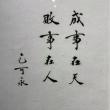 成事在天
敗事在人